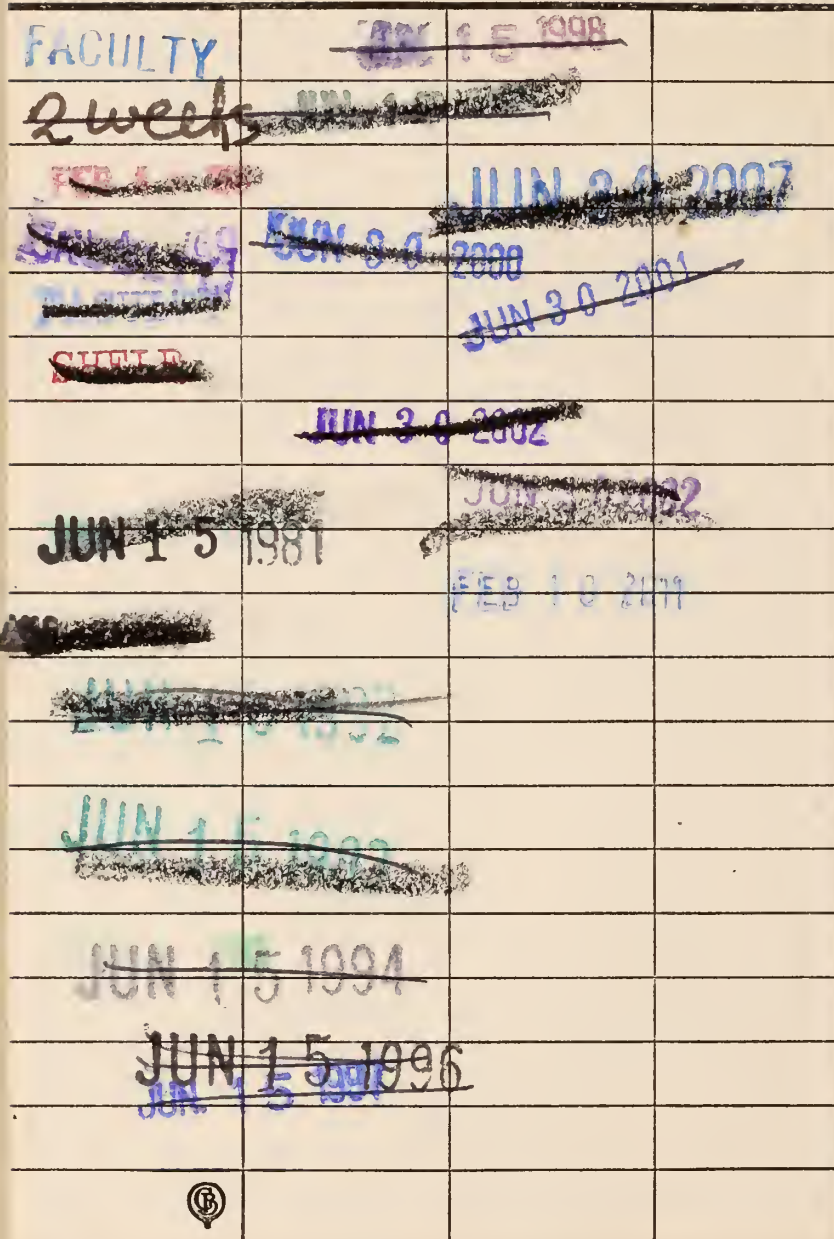 FACULTY
JUN 15 1998
2 weeks
JUN 30 2007
JUN 30 2000
JUN 30 2001
SHELF
JUN 30 2002
JUN 2002
JUN 15 1981
FEB 10 2011
JUN 15 1992
JUN 15
JUN 15 1994
JUN 15 1996
JUN. 15 1997